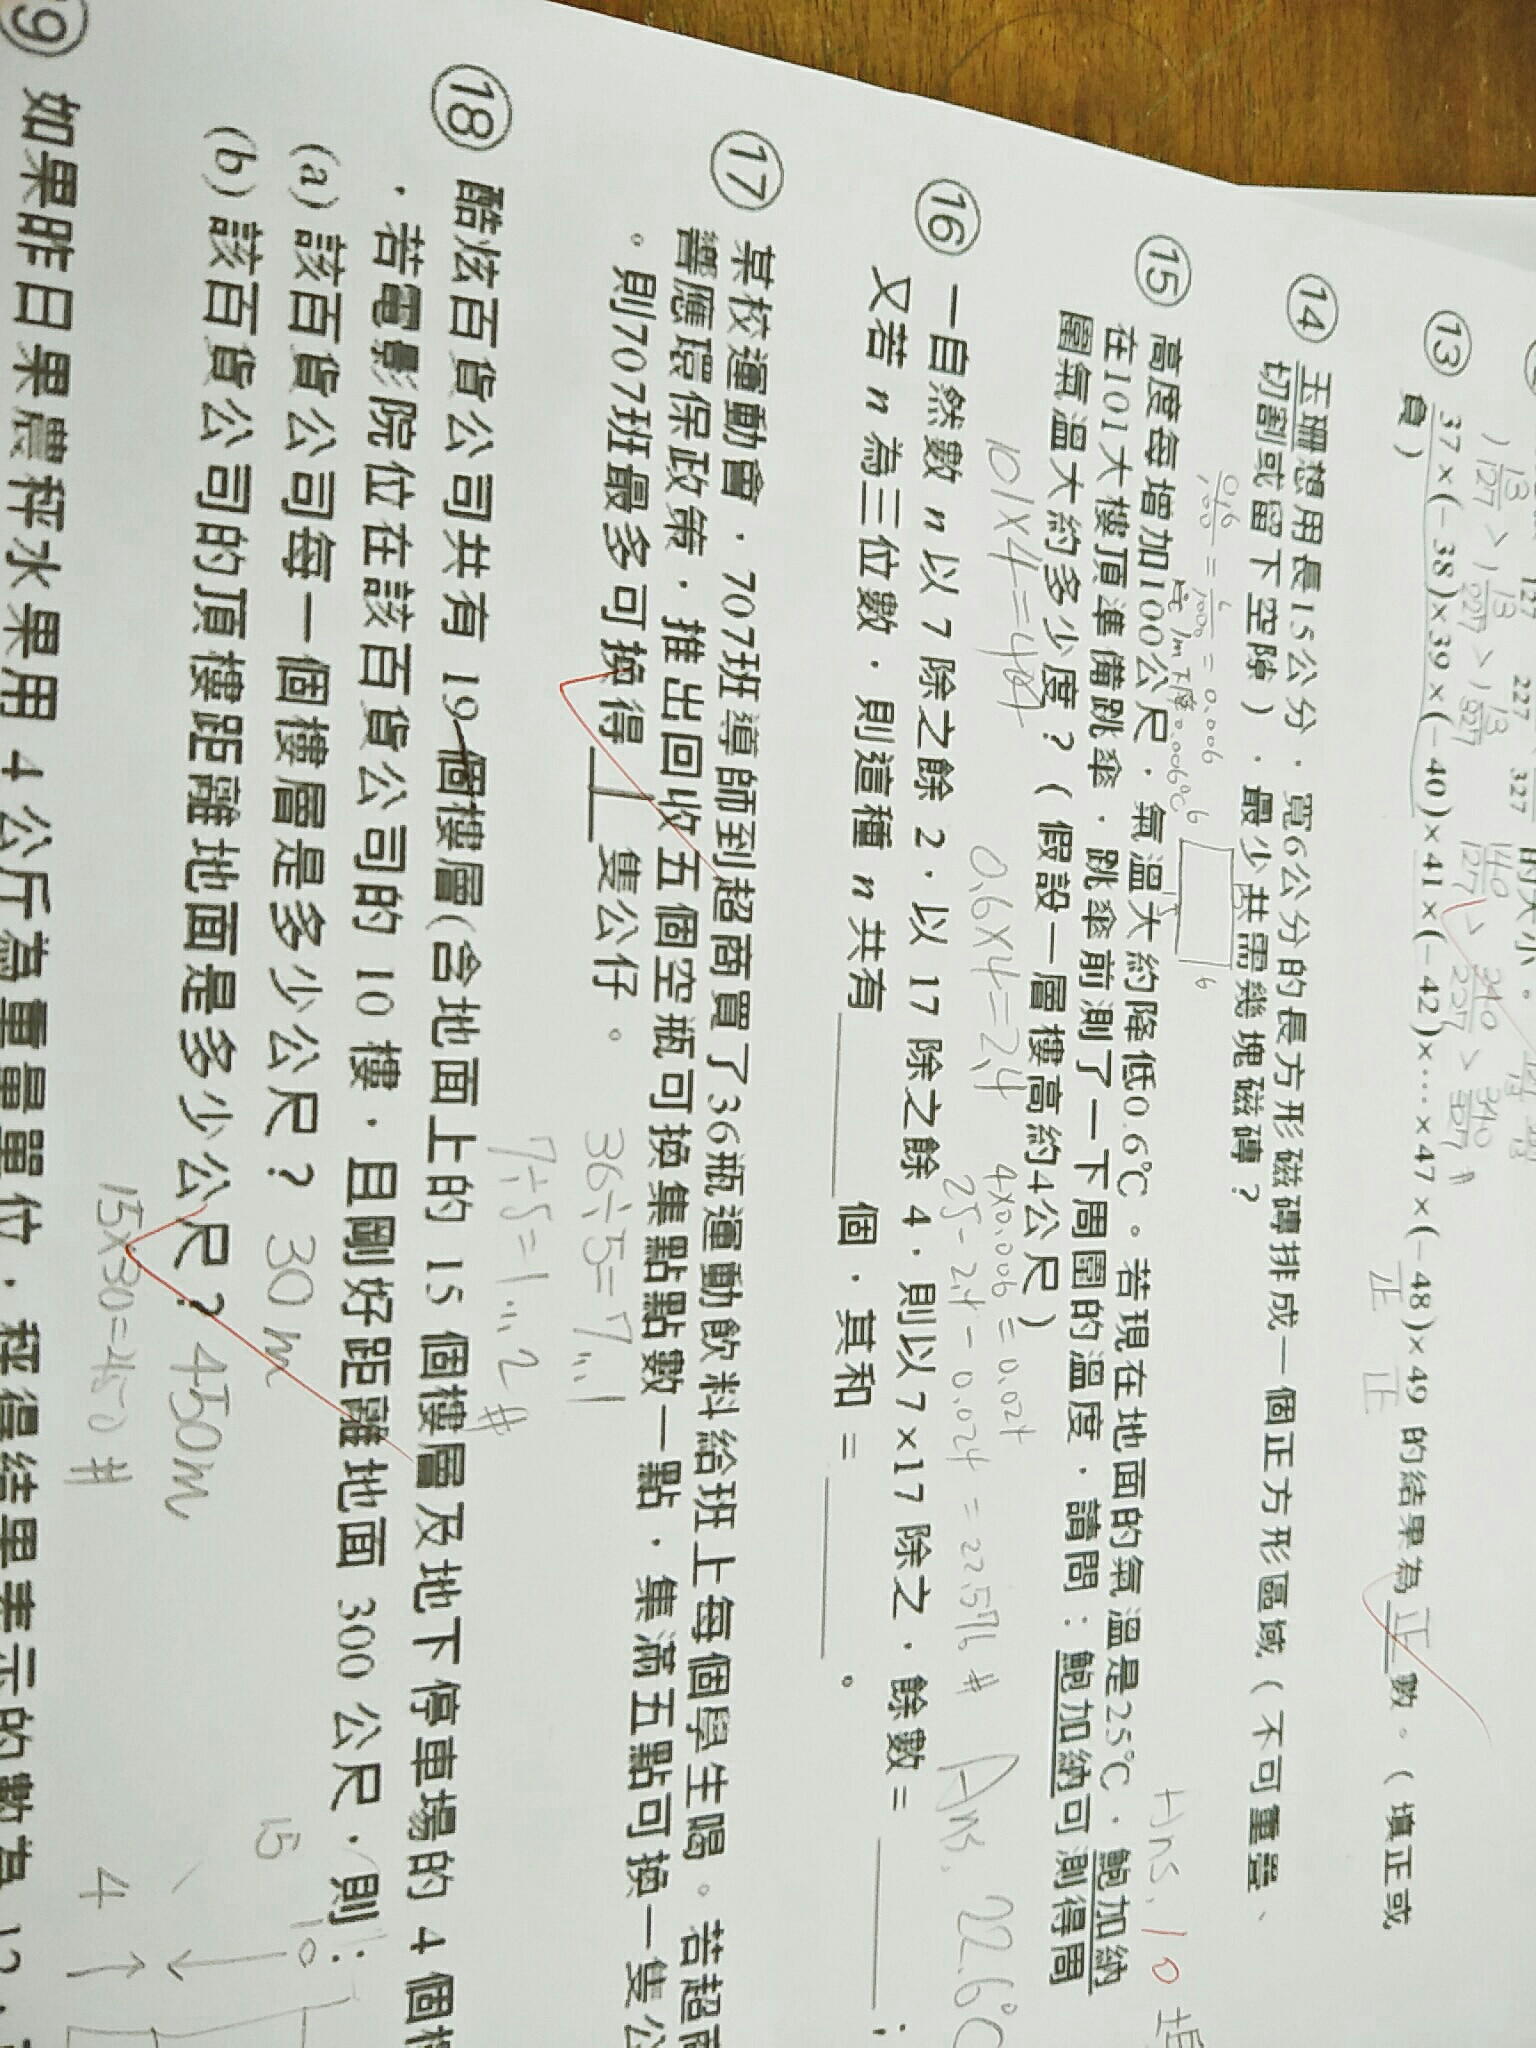 127 227 327 的大小。
13/127 > 13/227 > 13/327
140/127 > 240/227 > 340/327 #
⑬ 37×(-38)×39×(-40)×41×(-42)×…×47×(-48)×49 的結果為 正 數。(填正或
負)
正 正
⑭ 玉珊想用長15公分，寬6公分的長方形磁磚排成一個正方形區域(不可重疊、
切割或留下空隙)，最少共需幾塊磁磚？
6
6
Ans. 10 塊
0.6/100 = 6/1000 = 0.006
1m下降0.006℃
⑮ 高度每增加100公尺，氣溫大約降低0.6℃。若現在在地面的氣溫是25℃，鮑加納
在101大樓頂準備跳傘，跳傘前測了一下周圍的溫度，請問：鮑加納可測得周
圍氣溫大約多少度？(假設一層樓高約4公尺)
4×0.006=0.024
101×4=404 0.6×4=2.4 25-2.4-0.024=22.576 # Ans. 22.6℃
⑯ 一自然數 n 以 7 除之餘 2，以 17 除之餘 4，則以 7×17 除之，餘數= ；
又若 n 為三位數，則這種 n 共有 個，其和= 。
⑰ 某校運動會，707班導師到超商買了36瓶運動飲料給班上每個學生喝。若超商
響應環保政策，推出回收五個空瓶可換集點點數一點，集滿五點可換一隻公
。則707班最多可換得 1 隻公仔。
36÷5=7…1
7÷5=1…2 #
⑱ 酷炫百貨公司共有 19 個樓層(含地面上的 15 個樓層及地下停車場的 4 個樓
，若電影院位在該百貨公司的 10 樓，且剛好距離地面 300 公尺，則：
(a) 該百貨公司每一個樓層是多少公尺？ 30m
(b) 該百貨公司的頂樓距離地面是多少公尺？ 450m
15×30=450 #
15
10
4
⑲ 如果昨日果農秤水果用 4 公斤為重量單位，秤得結果表示的數為 12